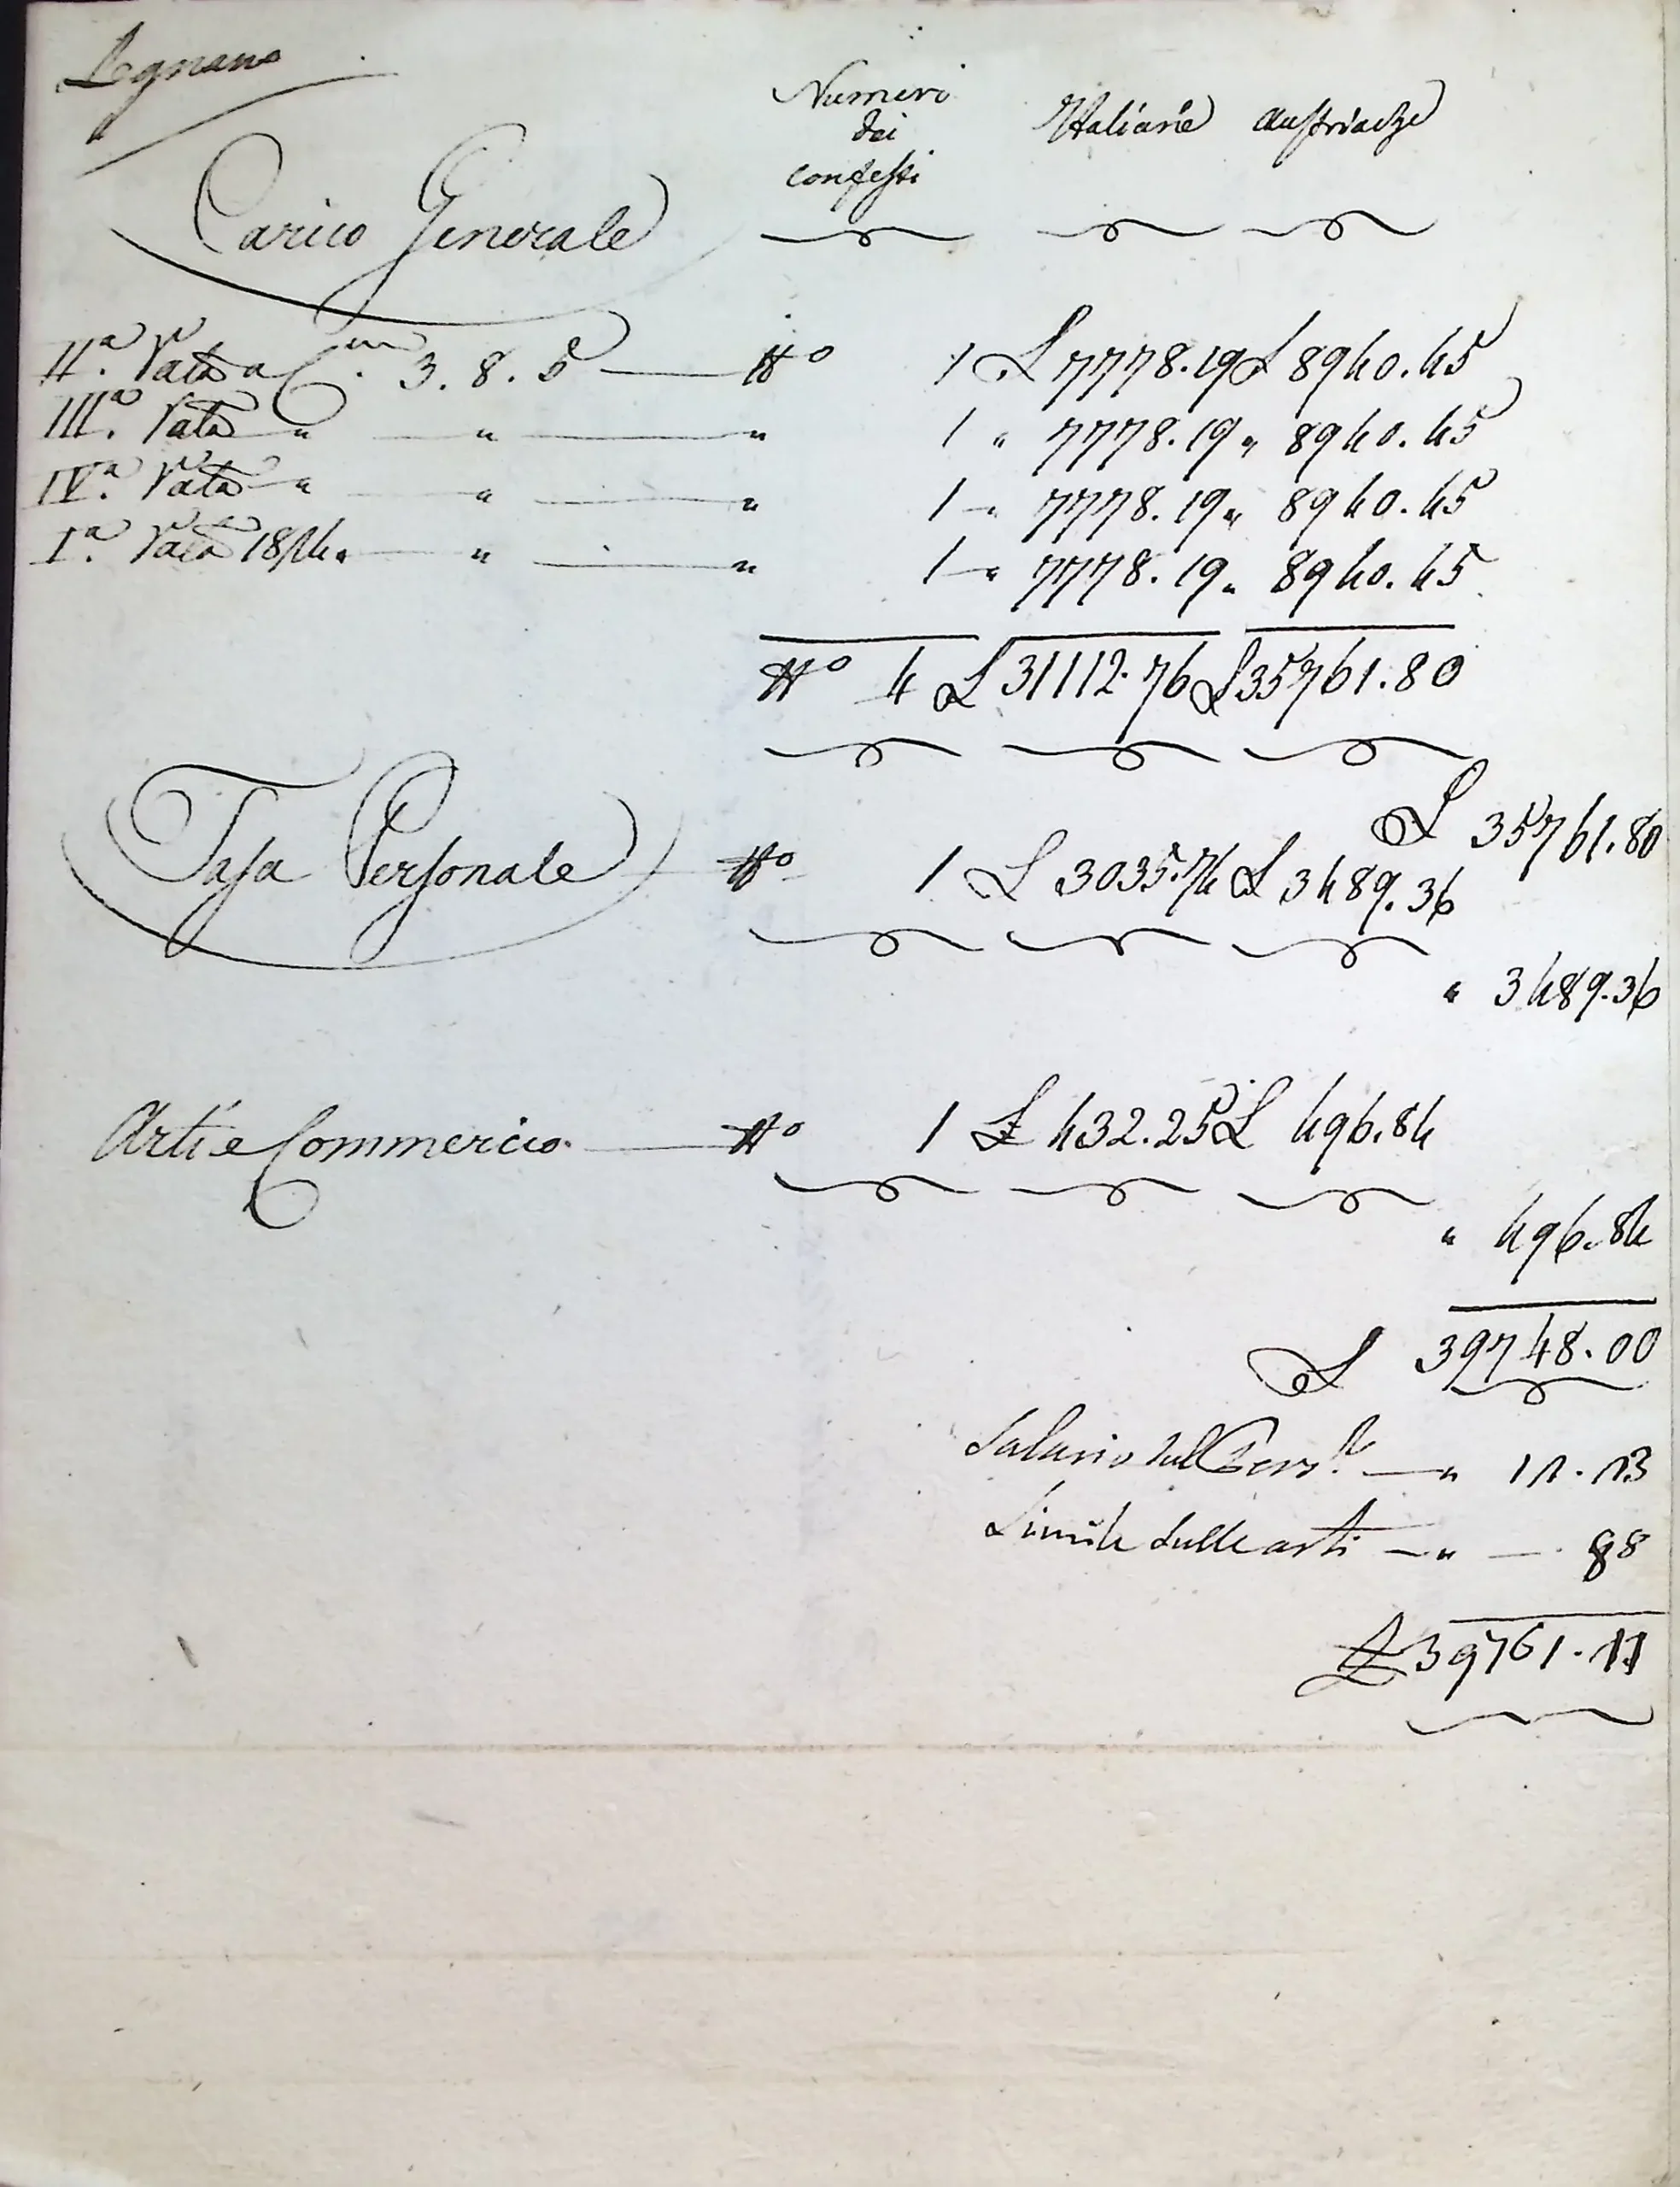 Legnano
Numeri
dei
confessi
Italiane Austriache
Carico Generale
IIª. Rata a C.mi 3. 8. 5 — Nº 1 L 7778.19 L 8940.45
IIIª. Rata " — " — " 1 " 7778.19 " 8940.45
IVª. Rata — " — " — " 1 — " 7778.19 " 8940.45
Iª. Rata 1824. — " — " 1 — " 7778.19 " 8940.45
Nº 4 L 31112.76 L 35761.80
L 35761.80
Tasa Personale — Nº 1 L 3035.74 L 3489.36
" 3489.36
Arti e Commercio. — Nº 1 L 432.25 L 496.84
" 496.84
L 39748.00
Salario sul Pers.le — " 12.23
Simile sulle arti — " — . 88
L 39761.11